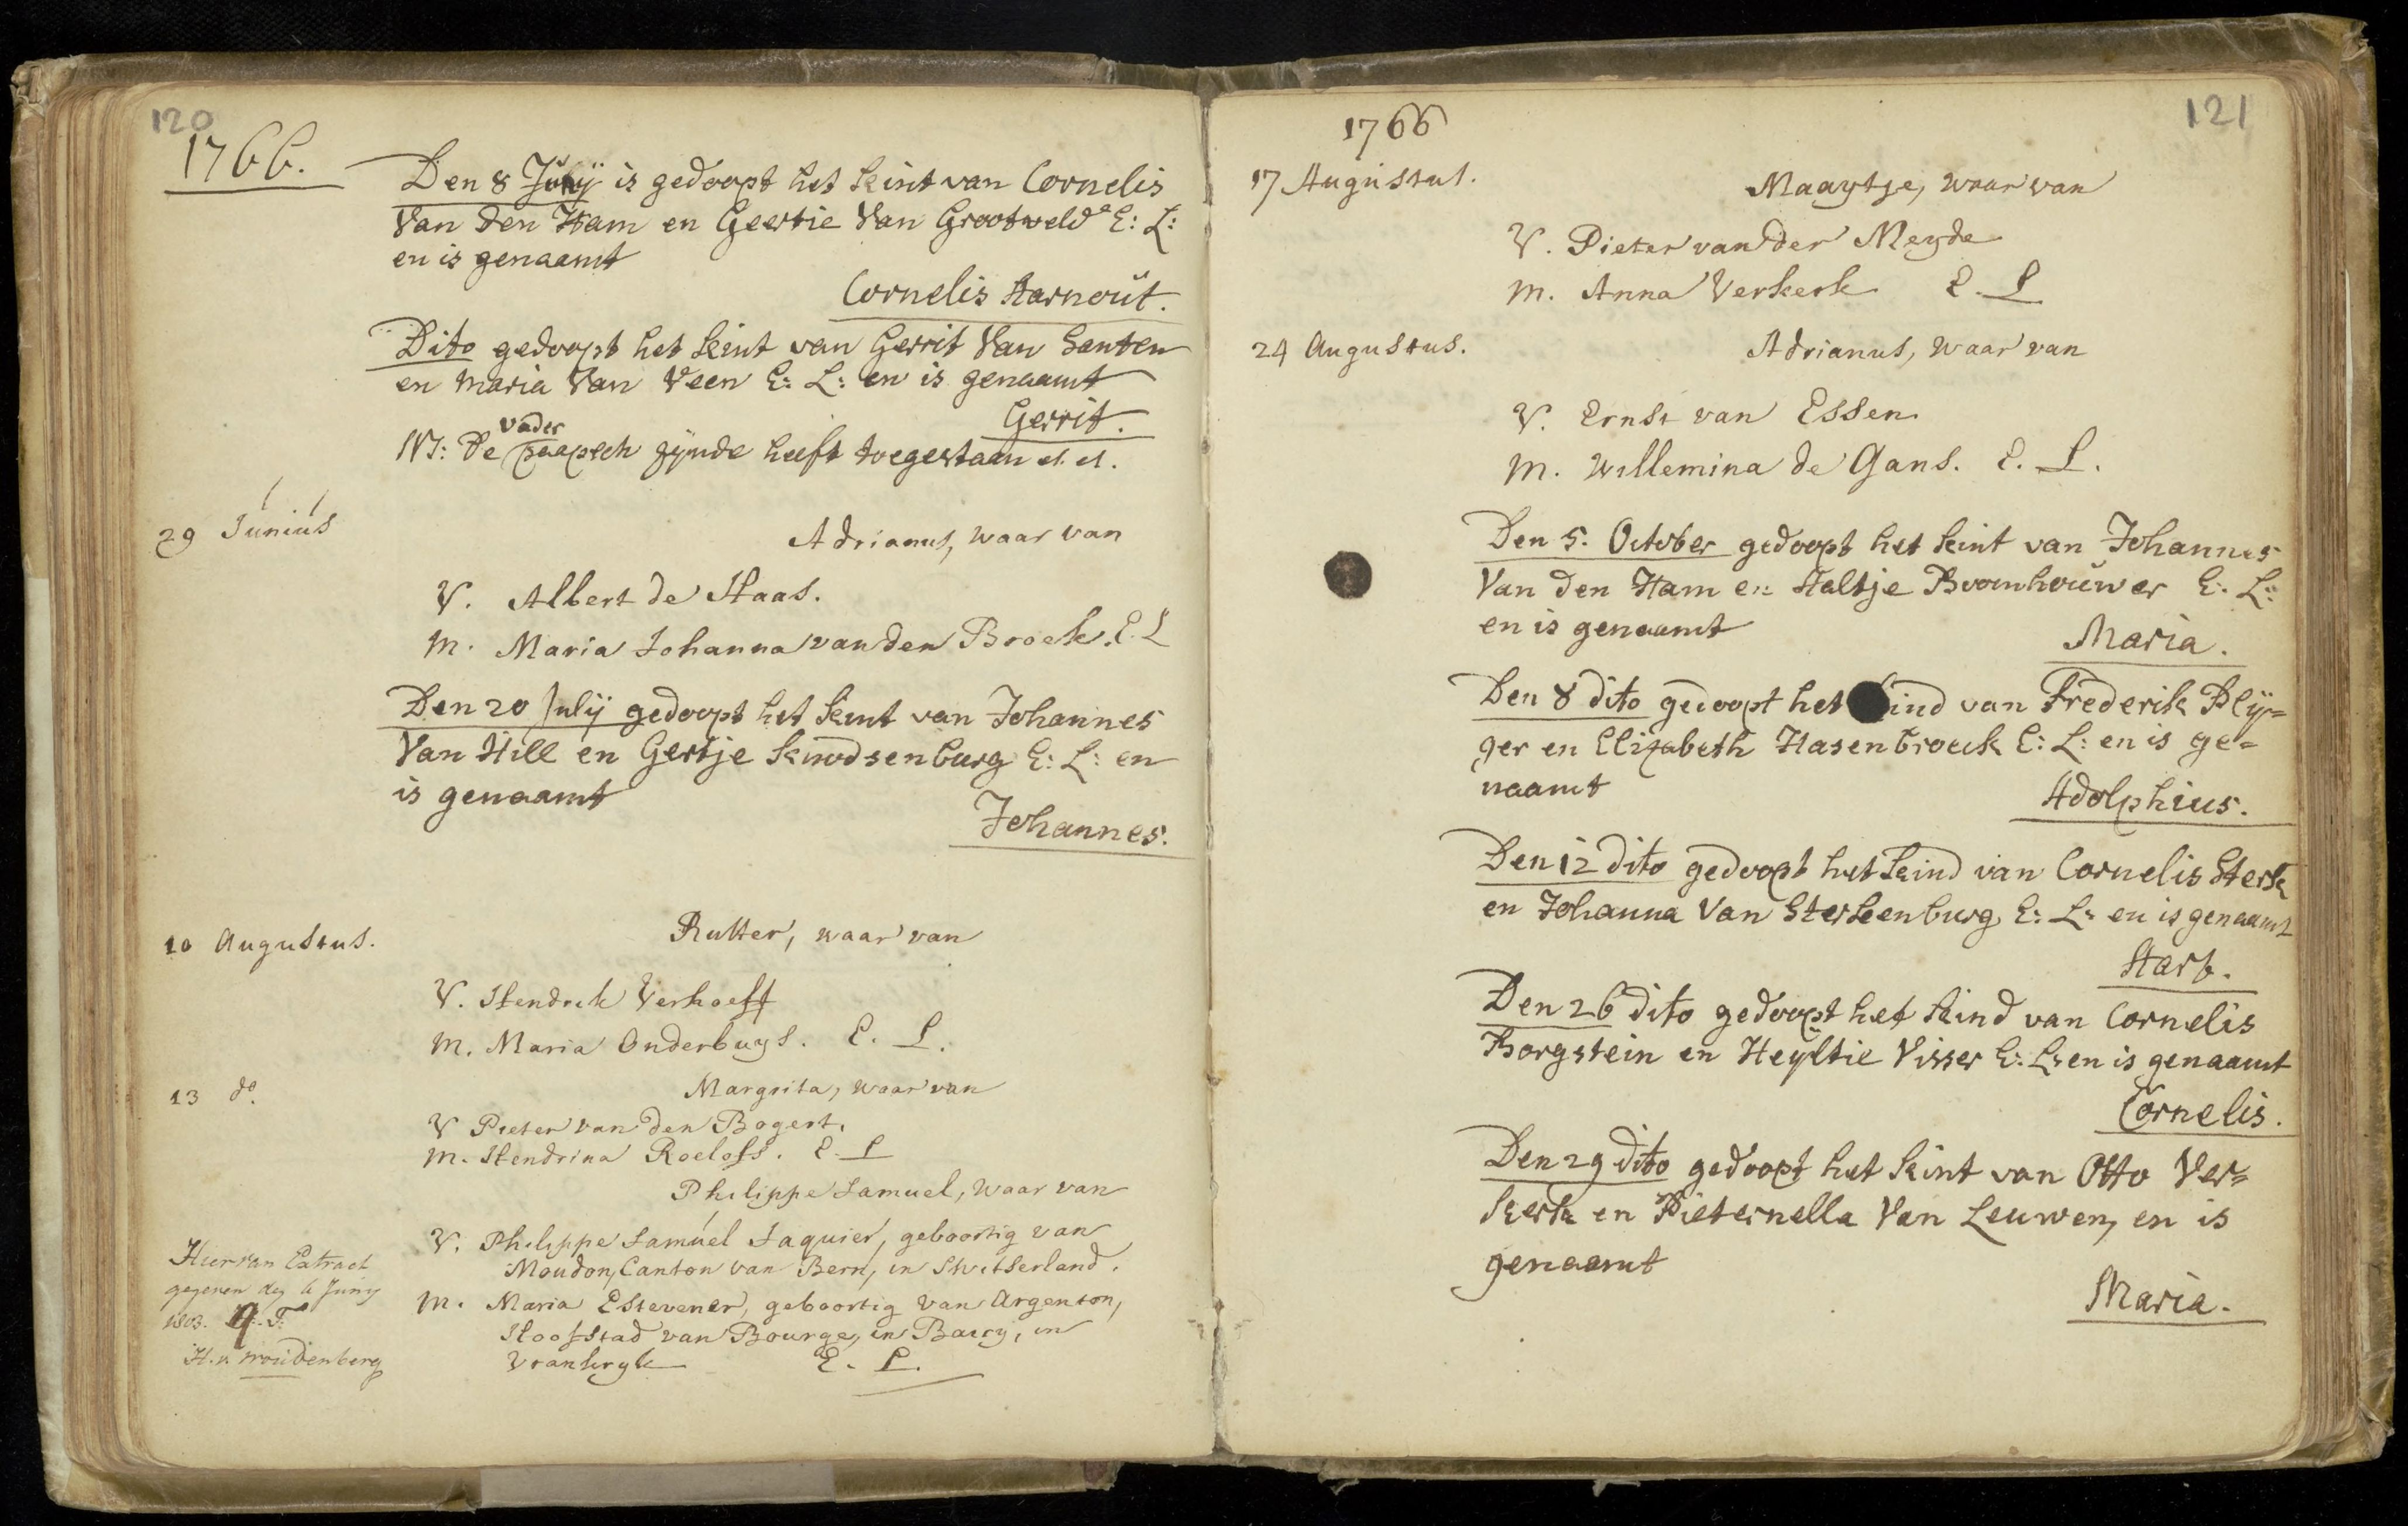 120
1766.
Den 8 Julij is gedoopt het kint van Cornelis
Van den Ham en Geertie Van Grootweld E: L:
en is genaamt
Cornelis Aarnoŭt.
Dito gedoopt het kint van Gerrit Van Santen
en Maria Van Veen E: L: en is genaamt
Gerrit.
vader
N: De paapsch zÿnde heeft toegestaan
29 Junius
Adrianus, waar van
V. Albert de Haas.
M. Maria Johanna van den Broek. E. L
Den 20 Julij gedoopt het kint van Johannes
Van Hill en Gertje Knodsenburg E: L: en
is genaamt
Johannes.
10 Augustus.
Rutter, waar van
V. Hendrik Verhoeff
M. Maria Onderbuys. E. L.
13 do.
Margrita, waar van
V Pieter van den Bogert.
M. Hendrina Roelofs. E. L
Philippe Samuel, waar van
V. Philippe Samuel Jaquier, geboortig van
Moudon, Canton van Bern, in Switserland.
M. Maria Estevener, geboortig van Argenton,
Hoofstad van Bourge, in Barry, in
Vrankryk E. L.
Hiervan Extract
gegeven den 6 Junij
1803.
H. v. Woudenberg
121
1766
17 Augustus.
Maaytje, waar van
V. Pieter van der Meyde
M. Anna Verkerk E. L
24 Augustus.
Adrianus, waar van
V. Ernst van Essen
M. Willemina de Gans. E. L.
Den 5. October gedoopt het kint van Johannes
Van den Ham en Aaltje Boomhoŭwer E: L:
en is genaamt
Maria.
Den 8 dito gedoopt het kind van Frederik Plÿ=
ger en Elizabeth Hasenbroeck E: L: en is ge=
naamt
Adolphius.
Den 12 dito gedoopt het kind van Cornelis Sterk
en Johanna Van Sterkenburg E: L: en is genaamt
Den 26 dito gedoopt het kind van Cornelis
Borgstein en Heyltie Visser E: L: en is genaamt
Cornelis.
Den 29 dito gedoopt het kint van Otto Ver=
kerk en Pieternella Van Leuwen, en is
genaamt
Maria.